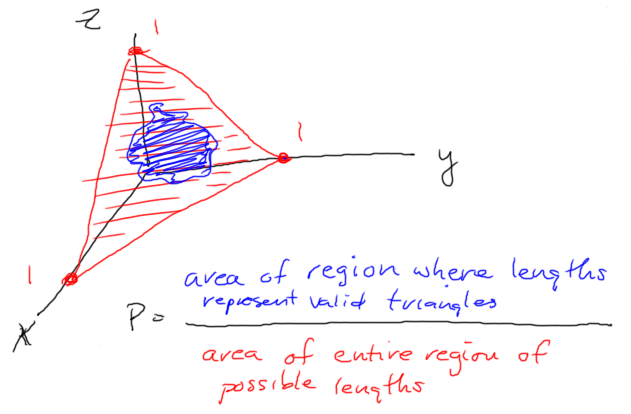 z
1
1
y
1
x
P = area of region where lengths
represent valid triangles
area of entire region of
possible lengths